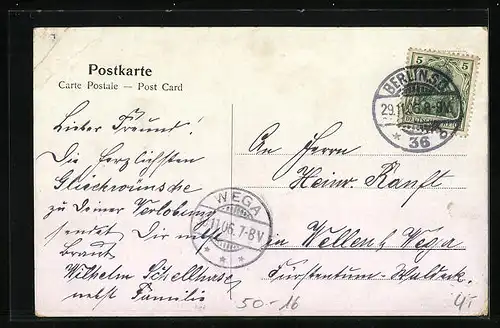 Postkarte
Carte Postale — Post Card
5 5
BERLIN S.O.
29.11.06. 8-9 V.
* 36
Lieber Freund!
Die herzlichsten
Glückwünsche
zu Deiner Verlobung
sendet Dir nebst
Braut
Wilhelm Schellhase
nebst Familie
WEGA
11.06. 7-8V
* * *
An Herrn
Heinr. Ranft
in Wellen b/ Wega
Fürstentum-Waldeck.
50-16